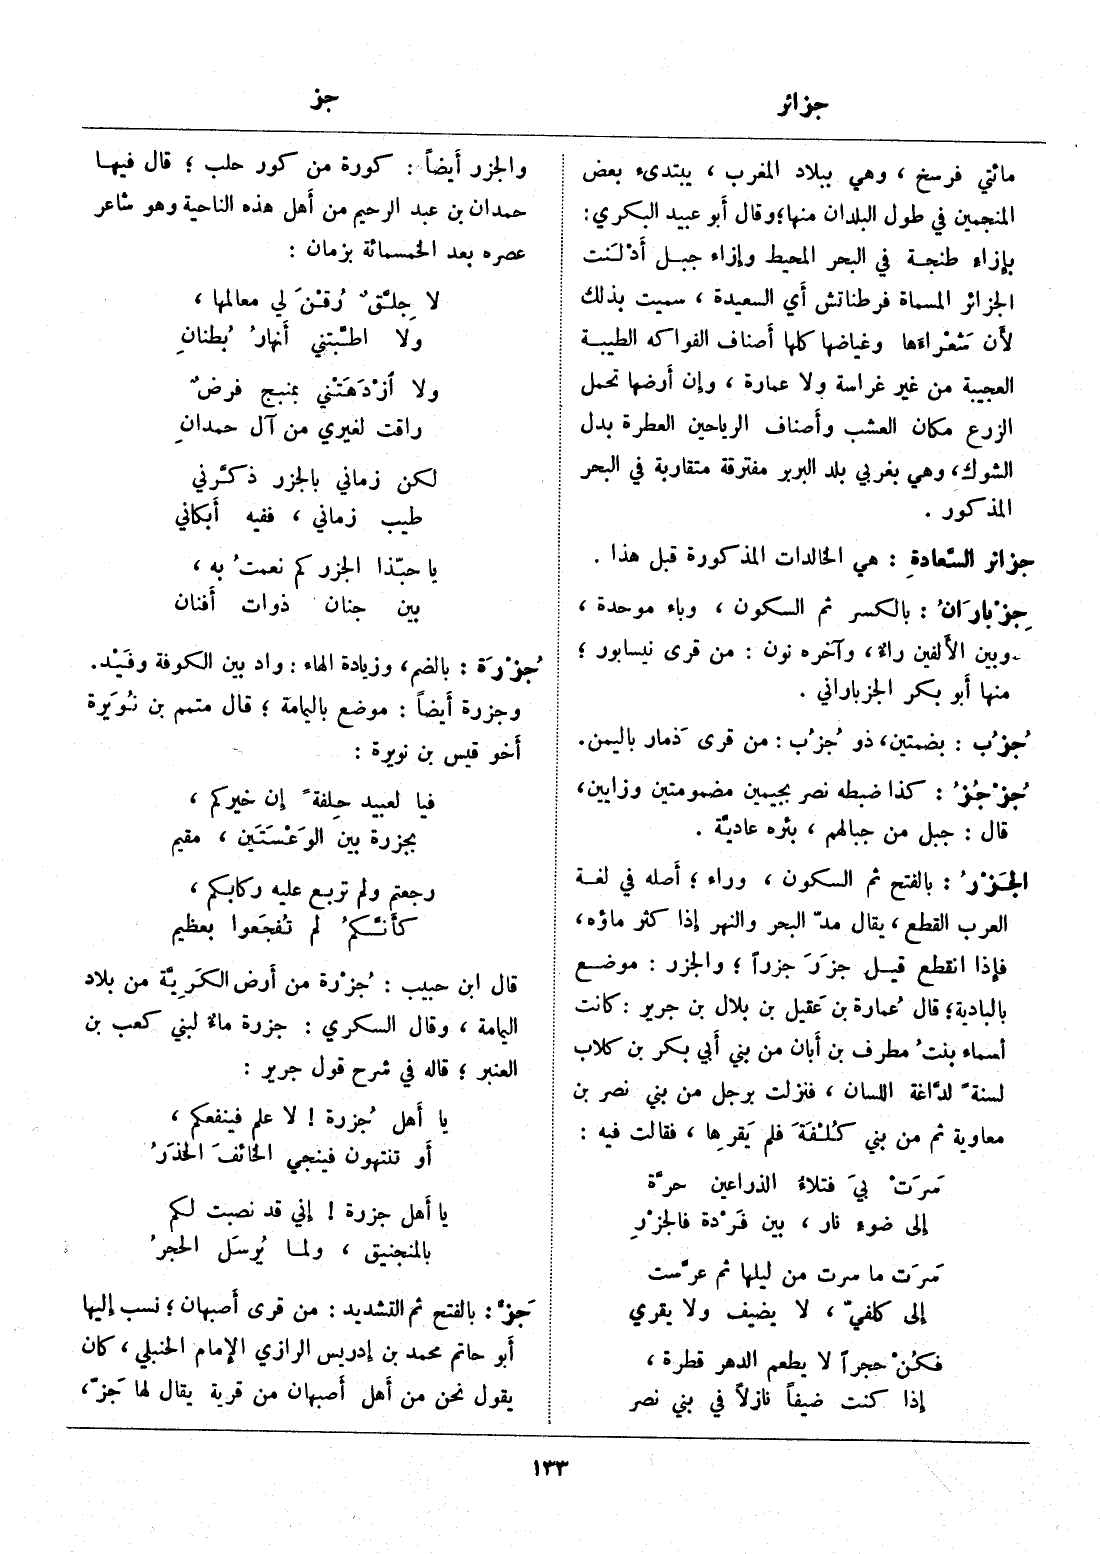 جزائر
جز
مائتي فرسخ ، وهي ببلاد المغرب ، يبتدىء بعض
المنجمين في طول البلدان منها؛ وقال أبو عبيد البكري :
بإزاء طنجة في البحر المحيط وإزاء جبل أدْلَنت
الجزائر المسماة فرطناتش أي السعيدة ، سميت بذلك
لأن شَعْراءها وغياضها كلها أصناف الفواكه الطيبة
العجيبة من غير غراسة ولا عمارة ، وإن أرضها تحمل
الزرع مكان العشب وأصناف الرياحين العطرة بدل
الشوك، وهي بغربي بلد البربر مفترقة متقاربة في البحر
المذكور .
جزائر السَّعادةِ : هي الخالدات المذكورة قبل هذا .
جِزْبارَانُ : بالكسر ثم السكون ، وباء موحدة ،
وبين الألفين راء، وآخره نون : من قرى نيسابور ؛
منها أبو بكر الجزباراني .
جُزُب : بضمتين، ذو جُزُب : من قرى ذَمار باليمن.
جُزْجُزُ : كذا ضبطه نصر بجيمين مضمومتين وزايين،
قال : جبل من جبالهم ، بئره عاديَّة .
الجَزْرُ : بالفتح ثم السكون ، وراء ؛ أصله في لغة
العرب القطع ، يقال مدّ البحر والنهر إذا كثر ماؤه،
فإذا انقطع قيل جزَرَ جزراً ؛ والجزر : موضع
بالبادية؛ قال عُمارة بن عَقيل بن بلال بن جرير : كانت
أسماء بنتُ مطرف بن أبان من بني أبي بكر بن كلاب
لسنةً لدَّاغة اللسان ، فنزلت برجل من بني نصر بن
معاوية ثم من بني كُلْفَةَ فلم يَقرِها ، فقالت فيه :
سَرَتْ بيَ فتلاءُ الذراعين حرَّة
إلى ضوء نار ، بين فَرْدة فالجزْرِ
سَرَت ما سرت من ليلها ثم عرَّست
إلى كلفيّ ، لا يضيف ولا يقري
فكُنْ حجراً لا يطعم الدهر قطرة ،
إذا كنت ضيفاً نازلاً في بني نصر
والجزر أيضاً : كورة من كور حلب ؛ قال فيها
حمدان بن عبد الرحيم من أهل هذه الناحية وهو شاعر
عصره بعد الخمسمائة بزمان :
لا جِلَّقٌ رُقْنَ لي معالمها ،
ولا اطَّبتني أنهارُ بُطنانِ
ولا ٱزْدَهَتْني بمنبج فرضٌ
راقت لغيري من آل حمدانِ
لكن زماني بالجزر ذكَّرني
طيب زماني ، ففيه أبكاني
يا حبّذا الجزر كم نعمتُ به ،
بين جنان ذوات أفنان
جُزْرَة : بالضم، وزيادة الهاء : واد بين الكوفة وفَيْد.
وجزرة أيضاً : موضع باليمامة ؛ قال متمم بن نُوَيرة
أخو قيس بن نويرة :
فيا لعبيد حِلفةً إن خيركم ،
بجزرة بين الوَعْسَتَين ، مقيم
رجعتم ولم تربع عليه ركابكم ،
كأنَّكمُ لم تُفجَعوا بعظيم
قال ابن حبيب : جُزْرة من أرض الكَريَّة من بلاد
اليمامة ، وقال السكري : جزرة ماء لبني كعب بن
العنبر ؛ قاله في شرح قول جرير :
يا أهل جُزرة ! لا علم فينفعكم ،
أو تنتهون فينجي الخائفَ الحذَرُ
يا أهل جزرة ! إني قد نصبت لكم
بالمنجنيق ، ولما يُوسَل الحجرُ
جَزّ : بالفتح ثم التشديد : من قرى أصبهان ؛ نسب إليها
أبو حاتم محمد بن إدريس الرازي الإمام الحنبلي ، كان
يقول نحن من أهل أصبهان من قرية يقال لها جَزّ ،
١٣٣